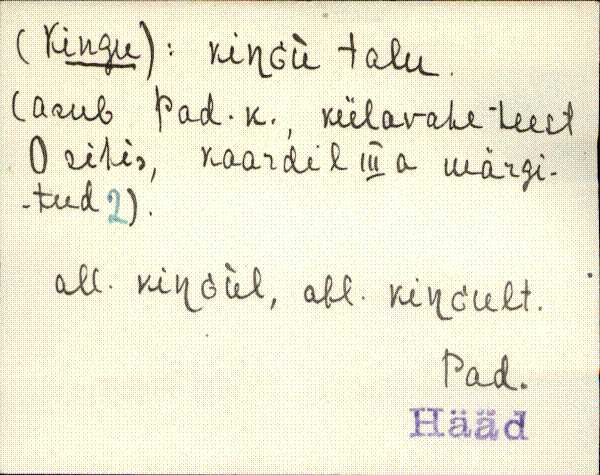 (Kingu): kinGù talu.
(asub Pad. k., külavahe-teest
O sihis, kaardil III a märgi-
-tud 2).
all. kinGùl, abl. kinGult.
Pad.
Hääd